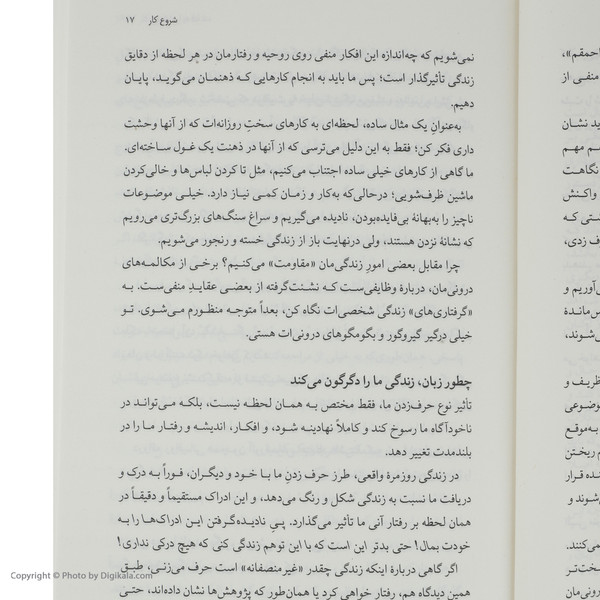 شروع کار ۱۷
نمی‌شویم که چه‌اندازه این افکار منفی روی روحیه و رفتارمان در هر لحظه از دقایق
زندگی تأثیرگذار است؛ پس ما باید به انجام کارهایی که ذهنمان می‌گوید، پایان
دهیم.
به‌عنوانِ یک مثال ساده، لحظه‌ای به کارهای سختِ روزانه‌ات که از آنها وحشت
داری فکر کن؛ فقط به این دلیل می‌ترسی که از آنها در ذهنت یک غول ساخته‌ای.
ما گاهی از کارهای خیلی ساده اجتناب می‌کنیم، مثل تا کردن لباس‌ها و خالی‌کردن
ماشین ظرف‌شویی؛ درحالی‌که به‌کار و زمان کمی نیاز دارد. خیلی موضوعات
ناچیز را به‌بهانهٔ بی‌فایده‌بودن، نادیده می‌گیریم و سراغ سنگ‌های بزرگ‌تری می‌رویم
که نشانهٔ نزدن هستند، ولی درنهایت باز از زندگی خسته و رنجور می‌شویم.
چرا مقابل بعضی امورِ زندگی‌مان «مقاومت» می‌کنیم؟ برخی از مکالمه‌های
درونی‌مان، دربارهٔ وظایفی‌ست که نشئت‌گرفته از بعضی عقایدِ منفی‌ست. به
«گرفتاری‌های» زندگی شخصی‌ات نگاه کن، بعداً متوجه منظورم می‌شوی. تو
خیلی درگیر گیروگور و بگومگوهای درونی‌ات هستی.
چطور زبان، زندگی ما را دگرگون می‌کند
تأثیر نوع حرف‌زدن ما، فقط مختص به همان لحظه نیست، بلکه می‌تواند در
ناخودآگاه ما رسوخ کند و کاملاً نهادینه شود، و افکار، اندیشه و رفتار ما را در
بلندمدت تغییر دهد.
در زندگی روزمرهٔ واقعی، طرز حرف زدنِ ما با خود و دیگران، فوراً به درک و
دریافت ما نسبت به زندگی شکل و رنگ می‌دهد، و این ادراک مستقیماً و دقیقاً در
همان لحظه بر رفتار آنی ما تأثیر می‌گذارد. پیِ نادیده‌گرفتن این ادراک‌ها را به
خودت بمال! حتی بدتر این است که با این توهم زندگی کنی که هیچ درکی نداری!
اگر گاهی دربارهٔ اینکه زندگی چقدر «غیرمنصفانه» است حرف می‌زنی، طبق
همین دیدگاه هم، رفتار خواهی کرد یا همان‌طور که پژوهش‌ها نشان داده‌اند، حتی
احمقم»،
منفی از
ید نشان
م مهم
نگاهت
واکنش
شتی که
رف زدی،
ی‌آوریم و
س‌مانده
ی‌شوند،
ظریف و
وضوعی
به‌موقع
م ریختن
نده قرار
شوند و
می‌کنند.
سخت‌تر
رونی‌مان
Copyright © Photo by Digikala.com